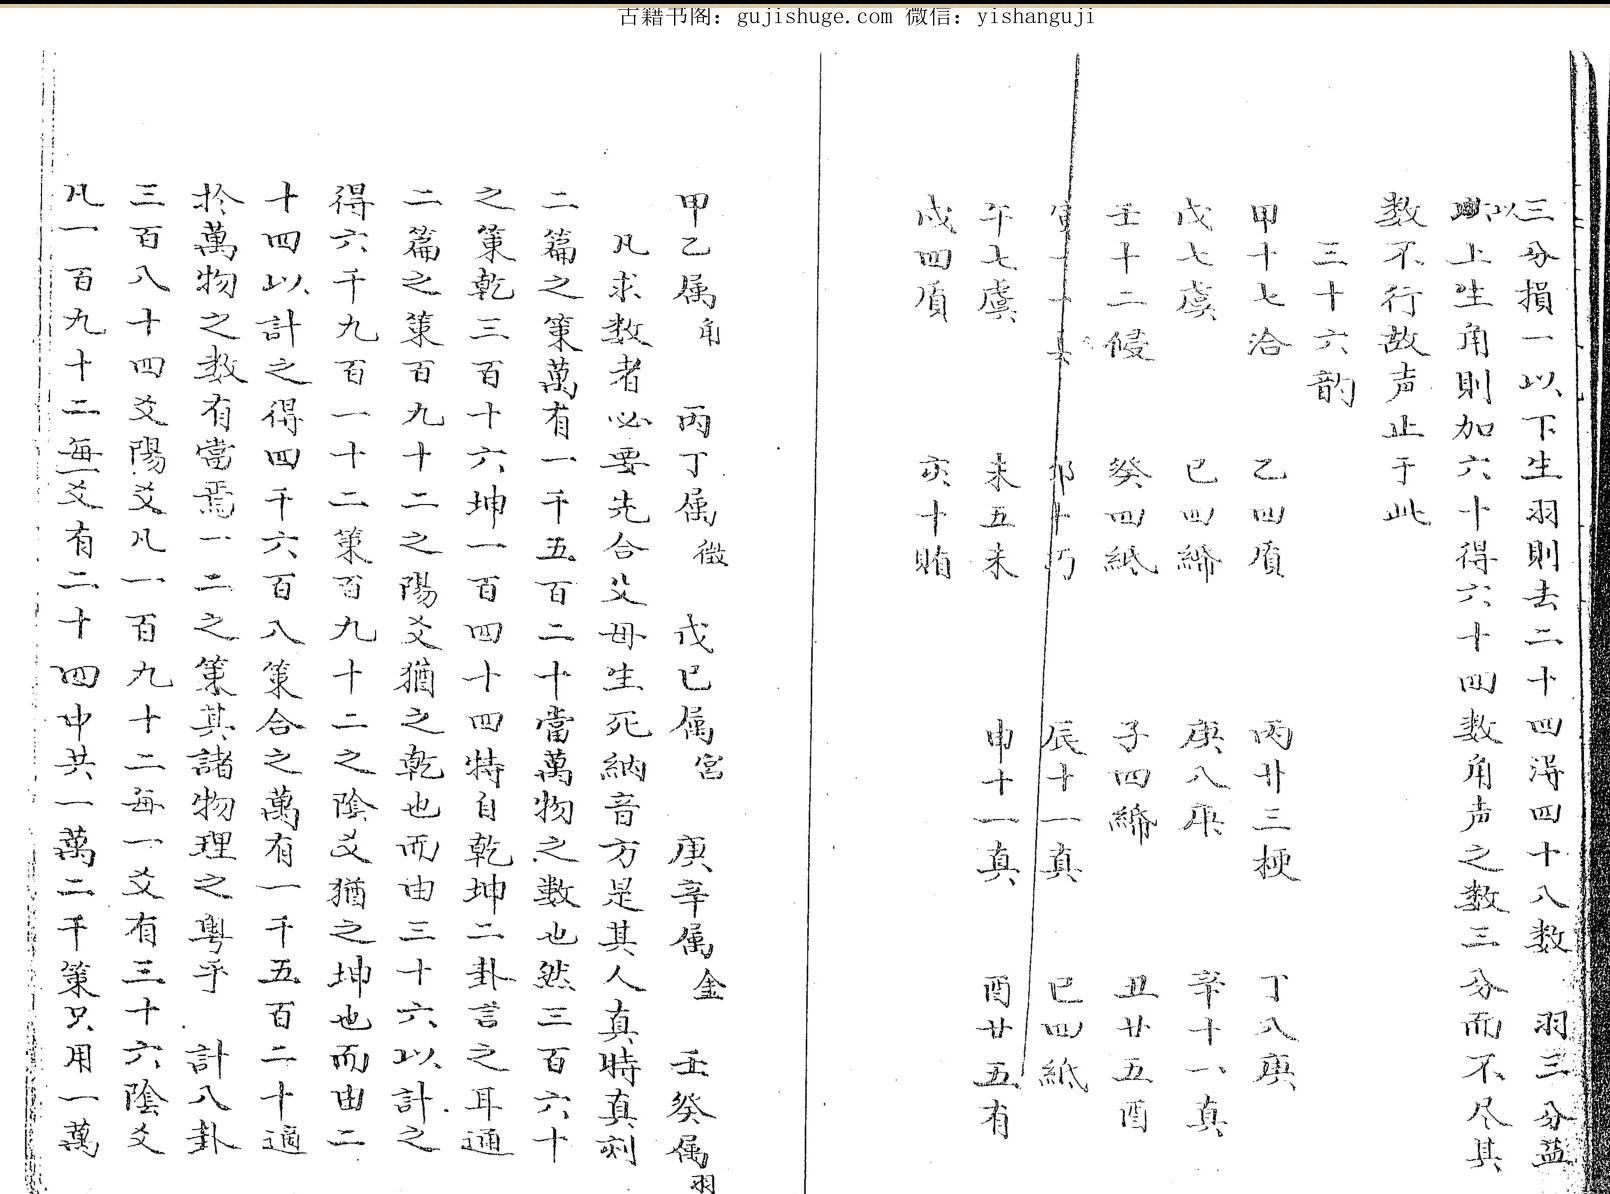 古籍书阁：gujishuge.com 微信：yishanguji
三分損一以下生羽則去二十四得四十八数　羽三分益
以上生角則加六十得六十四数角声之数三分而不尽其
数不行故声止于此
三十六韵
甲十七洽　乙四質　丙廿三梗　丁八庚
戊七虞　己四締　庚八庚　辛十一真
壬十二侵　癸四紙　子四締　丑廿五酉
寅十一真　卯十巧　辰十一真　巳四紙
午七虞　未五未　申十一真　酉廿五有
戌四質　亥十賄
甲乙属角　丙丁属徵　戊己属宮　庚辛属金　壬癸属羽
凡求数者必要先合父母生死納音方是其人真時真刻
二篇之策萬有一千五百二十當萬物之數也然三百六十
之策乾三百十六坤一百四十四特自乾坤二卦言之耳通
二篇之策百九十二之陽爻猶之乾也而由三十六以計之
得六千九百一十二策百九十二之陰爻猶之坤也而由二
十四以計之得四千六百八策合之萬有一千五百二十適
扵萬物之数有當焉一二之策其諸物理之粵乎　計八卦
三百八十四爻陽爻凡一百九十二每一爻有三十六陰爻
凡一百九十二每一爻有二十四中共一萬二千策只用一萬